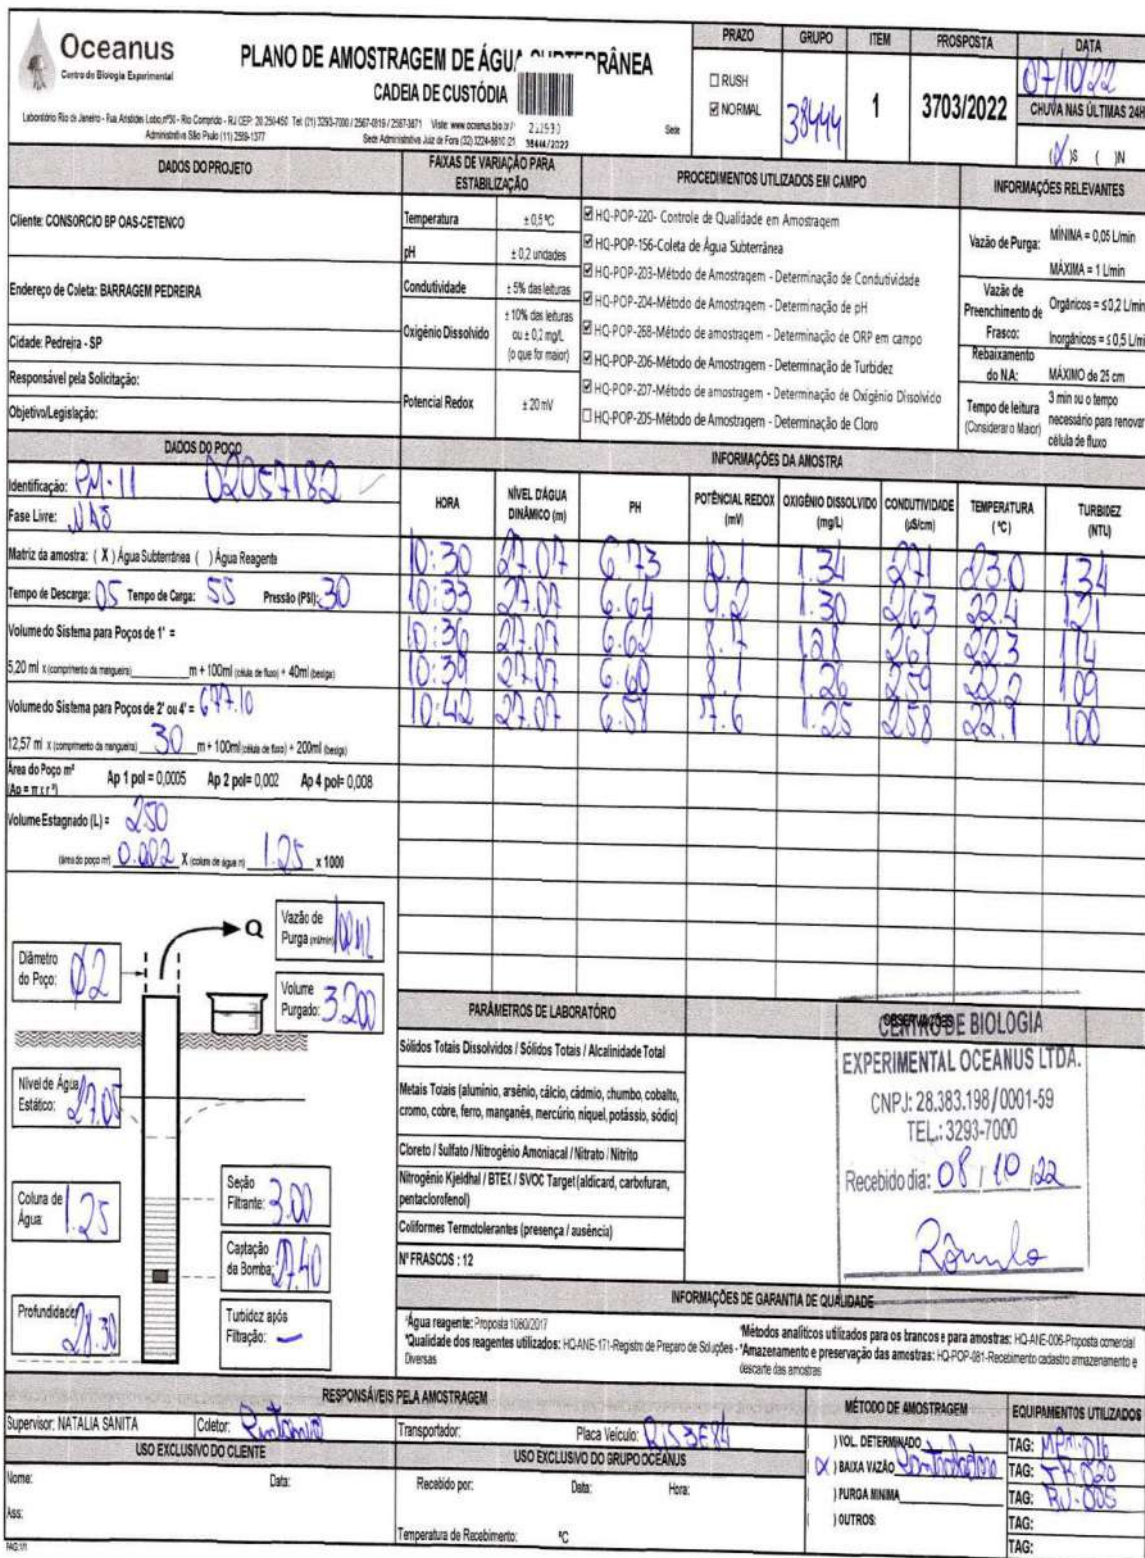 Oceanus
Centro de Biologia Experimental
PLANO DE AMOSTRAGEM DE ÁGUA SUBTERRÂNEA
CADEIA DE CUSTÓDIA
Laboratório Rio de Janeiro - Rua Aristides Lobo, nº30 - Rio Comprido - RJ CEP: 20.250-450 Tel: (21) 3293-7000 / 2567-0819 / 2587-3871 Visite: www.oceanus.bio.br
Administrativa São Paulo (11) 2589-1377 Sede Administrativa Juiz de Fora (32) 3224-8610
38444/2022
Sede
PRAZO GRUPO ITEM PROSPOSTA DATA
☐ RUSH
☑ NORMAL
38444 1 3703/2022 07/10/22
CHUVA NAS ÚLTIMAS 24H
(X)S ( )N
DADOS DO PROJETO
Cliente: CONSORCIO BP OAS-CETENCO
Endereço de Coleta: BARRAGEM PEDREIRA
Cidade: Pedreira - SP
Responsável pela Solicitação:
Objetivo/Legislação:
FAIXAS DE VARIAÇÃO PARA
ESTABILIZAÇÃO
Temperatura ± 0,5 ºC
pH ± 0,2 unidades
Condutividade ± 5% das leituras
Oxigênio Dissolvido ± 10% das leituras
ou ± 0,2 mg/L
(o que for maior)
Potencial Redox ± 20 mV
PROCEDIMENTOS UTILIZADOS EM CAMPO
☑ HQ-POP-220- Controle de Qualidade em Amostragem
☑ HQ-POP-156-Coleta de Água Subterrânea
☑ HQ-POP-203-Método de Amostragem - Determinação de Condutividade
☑ HQ-POP-204-Método de Amostragem - Determinação de pH
☑ HQ-POP-268-Método de amostragem - Determinação de ORP em campo
☑ HQ-POP-206-Método de Amostragem - Determinação de Turbidez
☑ HQ-POP-207-Método de amostragem - Determinação de Oxigênio Dissolvido
☐ HQ-POP-205-Método de Amostragem - Determinação de Cloro
INFORMAÇÕES RELEVANTES
Vazão de Purga: MÍNIMA = 0,05 L/min
MÁXIMA = 1 L/min
Vazão de
Preenchimento de
Frasco:
Orgânicos = ≤ 0,2 L/min
Inorgânicos = ≤ 0,5 L/mi
Rebaixamento
do N.A: MÁXIMO de 25 cm
Tempo de leitura
(Considerar o Maior)
3 min ou o tempo
necessário para renovar
célula de fluxo
DADOS DO POÇO
Identificação: PM-11 02057182
Fase Livre: NÃO
Matriz da amostra: ( X ) Água Subterrânea ( ) Água Reagente
Tempo de Descarga: 05 Tempo de Carga: 55 Pressão (PSI): 30
Volume do Sistema para Poços de 1" =
5,20 ml x (comprimento da mangueira) m + 100ml (célula de fluxo) + 40ml (bexiga)
Volume do Sistema para Poços de 2" ou 4" = 677.10
12,57 ml x (comprimento da mangueira) 30 m + 100ml (célula de fluxo) + 200ml (bexiga)
Área do Poço m²
(Ap = π x r²)
Ap 1 pol = 0,0005 Ap 2 pol= 0,002 Ap 4 pol= 0,008
Volume Estagnado (L) = 250
(área do poço m²) 0.002 X (coluna de água m) 1.25 x 1000
INFORMAÇÕES DA AMOSTRA
HORA NÍVEL D'ÁGUA DINÂMICO (m) PH POTÊNCIAL REDOX (mV) OXIGÊNIO DISSOLVIDO (mg/L) CONDUTIVIDADE (µS/cm) TEMPERATURA (ºC) TURBIDEZ (NTU)
10:30 27.07 6.73 10.1 1.34 271 23.0 134
10:33 27.07 6.64 9.2 1.30 263 22.4 121
10:36 27.07 6.62 8.7 1.28 261 22.3 114
10:39 27.07 6.60 8.1 1.26 259 22.2 109
10:42 27.07 6.58 7.6 1.25 258 22.1 100
Q
Vazão de
Purga (ml/min) 100 ML
Diâmetro
do Poço: 02
Volume
Purgado: 3.200
Nível de Água
Estático: 27.05
Coluna de
Água: 1.25
Seção
Filtrante: 3.00
Captação
da Bomba: 27.40
Profundidade: 28.30
Turbidez após
Filtração: —
PARÂMETROS DE LABORATÓRIO
Sólidos Totais Dissolvidos / Sólidos Totais / Alcalinidade Total
Metais Totais (alumínio, arsênio, cálcio, cádmio, chumbo, cobalto,
cromo, cobre, ferro, manganês, mercúrio, níquel, potássio, sódio)
Cloreto / Sulfato / Nitrogênio Amoniacal / Nitrato / Nitrito
Nitrogênio Kjeldhal / BTEX / SVOC Target (aldicard, carbofuran,
pentaclorofenol)
Coliformes Termotolerantes (presença / ausência)
Nº FRASCOS : 12
OBSERVAÇÕES
CENTRO DE BIOLOGIA
EXPERIMENTAL OCEANUS LTDA.
CNPJ: 28.383.198/0001-59
TEL.: 3293-7000
Recebido dia: 08 / 10 / 22
Rômulo
INFORMAÇÕES DE GARANTIA DE QUALIDADE
*Água reagente: Proposta 1080/2017
*Qualidade dos reagentes utilizados: HQ-ANE-171-Registro de Preparo de Soluções -
Diversas
*Métodos analíticos utilizados para os brancos e para amostras: HQ-ANE-006-Proposta comercial
*Amazenamento e preservação das amostras: HQ-POP-081-Recebimento cadastro armazenamento e
descarte das amostras
RESPONSÁVEIS PELA AMOSTRAGEM
Supervisor: NATALIA SANITA Coletor: Transportador: Placa Veículo: RIS3E84
USO EXCLUSIVO DO CLIENTE
Nome: Data:
Ass:
USO EXCLUSIVO DO GRUPO OCEANUS
Recebido por: Data: Hora:
Temperatura de Recebimento: ºC
MÉTODO DE AMOSTRAGEM
( ) VOL. DETERMINADO
(X) BAIXA VAZÃO
( ) PURGA MINIMA
( ) OUTROS:
EQUIPAMENTOS UTILIZADOS
TAG: MPM-016
TAG: TB-020
TAG: RJ-005
TAG:
TAG:
PAG:1/1